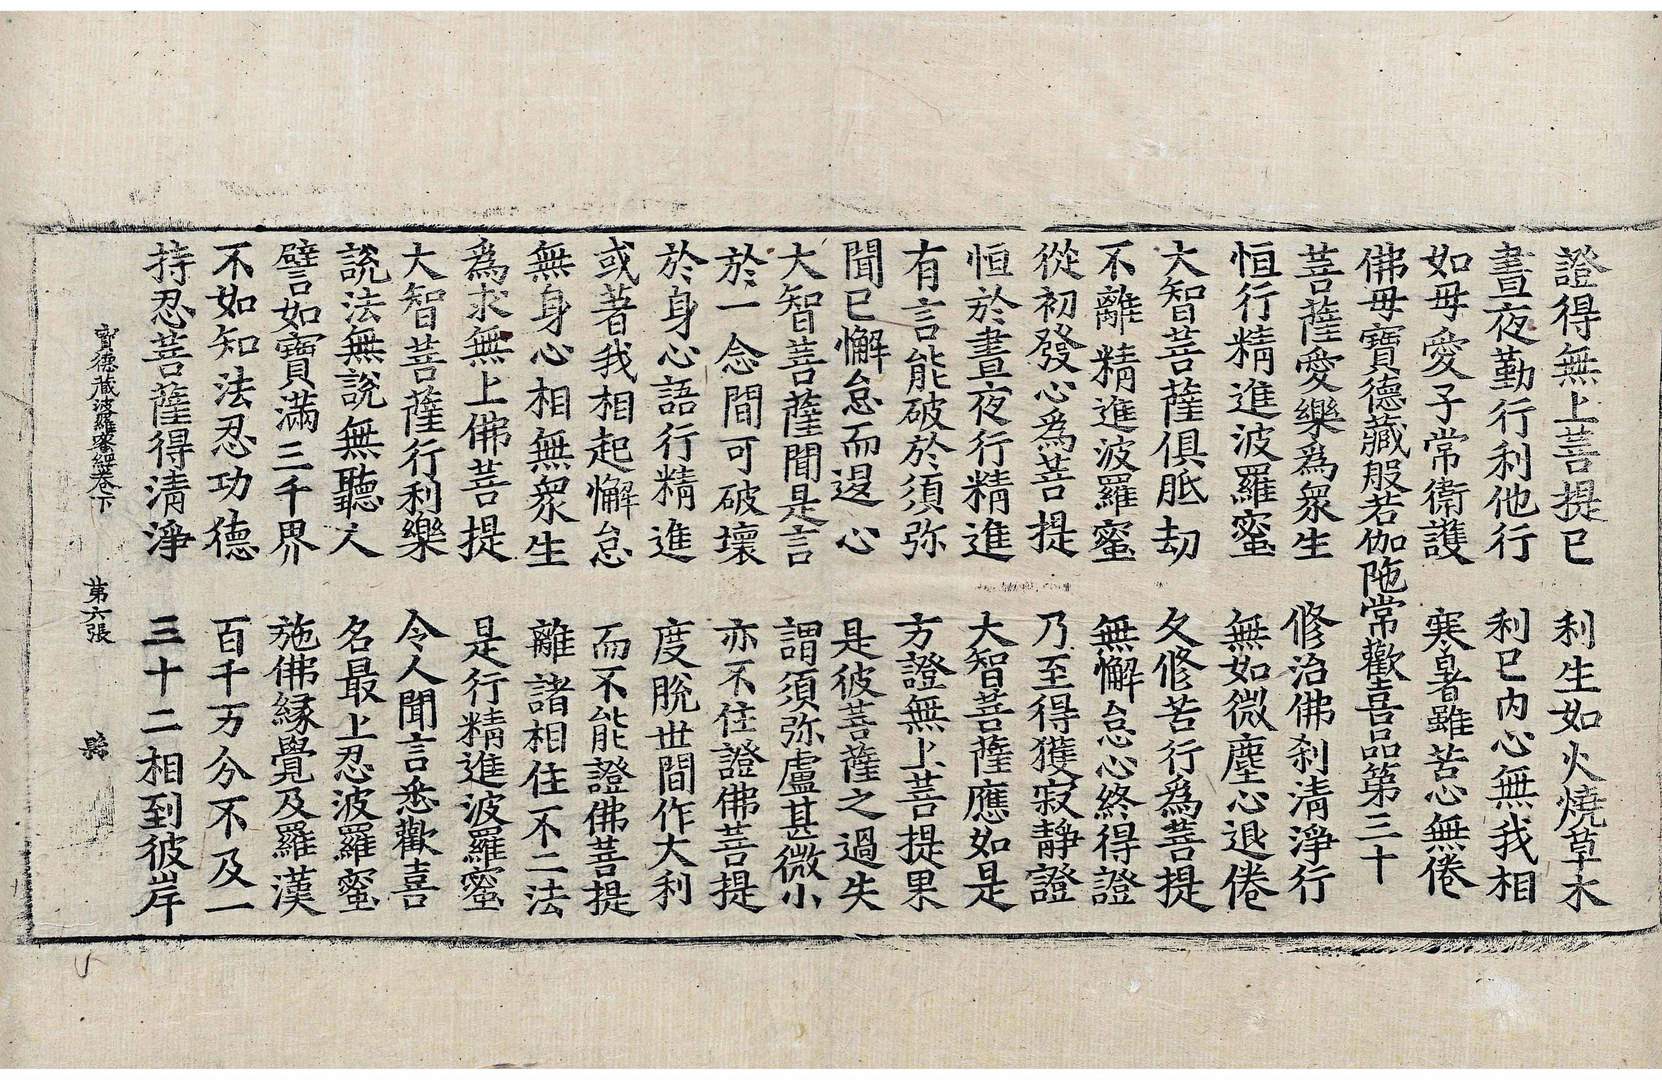 證得無上菩提已　利生如火燒草木
晝夜勤行利他行　利已內心無我相
如母愛子常衛護　寒暑雖苦心無倦
佛母寶德藏般若伽陁常歡喜品第三十
菩薩愛樂爲衆生　修治佛刹清淨行
恒行精進波羅蜜　無如微塵心退倦
大智菩薩俱胝劫　久修苦行爲菩提
不離精進波羅蜜　無懈怠心終得證
從初發心爲菩提　乃至得獲寂靜證
恒於晝夜行精進　大智菩薩應如是
有言能破於須弥　方證無上菩提果
聞已懈怠而退心　是彼菩薩之過失
大智菩薩聞是言　謂須弥盧甚微小
於一念間可破壞　亦不住證佛菩提
於身心語行精進　度脫世間作大利
或著我相起懈怠　而不能證佛菩提
無身心相無衆生　離諸相住不二法
爲求無上佛菩提　是行精進波羅蜜
大智菩薩行利樂　令人聞言悉歡喜
說法無說無聽人　名最上忍波羅蜜
譬如寶滿三千界　施佛緣覺及羅漢
不如知法忍功德　百千万分不及一
持忍菩薩得清淨　三十二相到彼岸
寶德藏波羅蜜經卷下　第六張